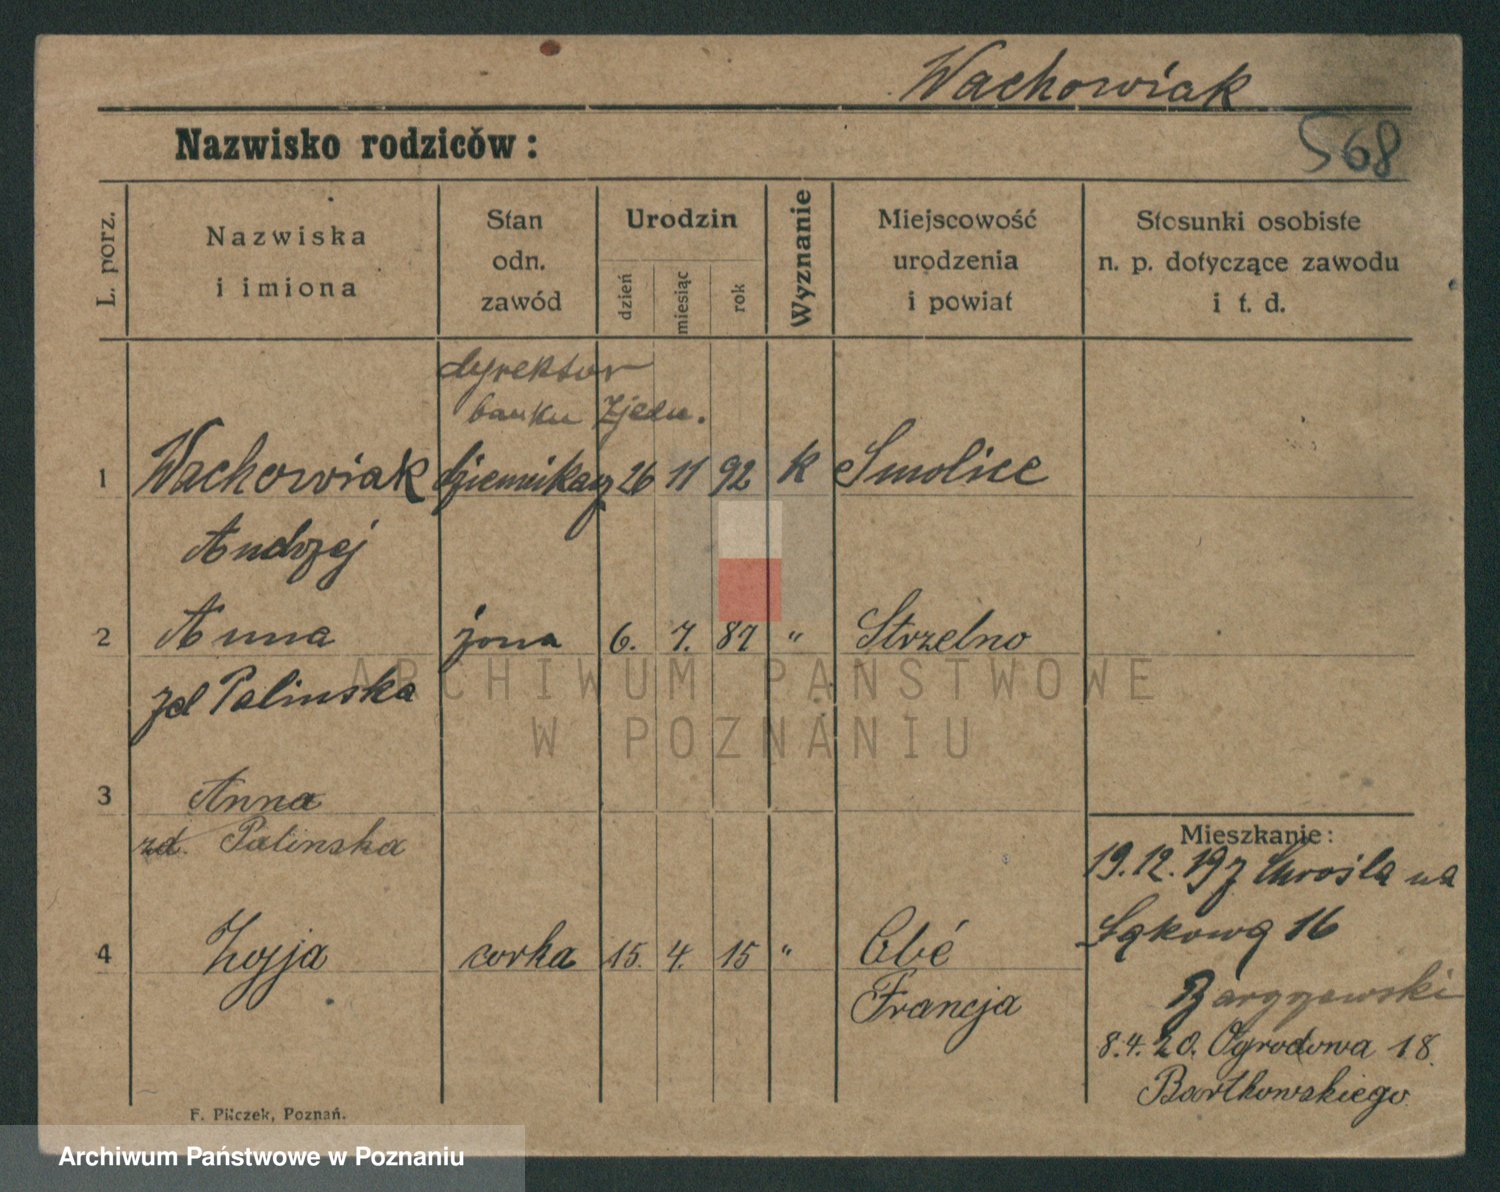 Wachowiak
Nazwisko rodziców:
568
L. porz.
Nazwiska
i imiona
Stan
odn.
zawód
Urodzin
dzień
miesiąc
rok
Wyznanie
Miejscowość
urodzenia
i powiat
Stosunki osobiste
n. p. dotyczące zawodu
i t. d.
dyrektor
banku Zjedn.
1 Wachowiak dziennikarz 26 11 92 k Smolice
Andrzej
2 Anna żona 6. 7. 87 " Strzelno
zd Palinska
3 Anna
zd. Palinska
4 Zofja corka 15. 4. 15 "
Francja
Mieszkanie:
19.12.19 z na
Łąkową 16
8.4.20. Ogrodowa 18.
Bartkowskiego
F. Pilczek, Poznań.
ARCHIWUM PAŃSTWOWE
W POZNANIU
Archiwum Państwowe w Poznaniu